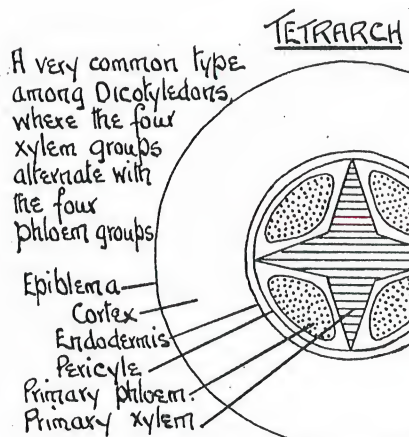 TETRARCH
A very common type
among Dicotyledons,
where the four
xylem groups
alternate with
the four
phloem groups
Epiblema
Cortex
Endodermis
Pericyle
Primary phloem
Primary xylem